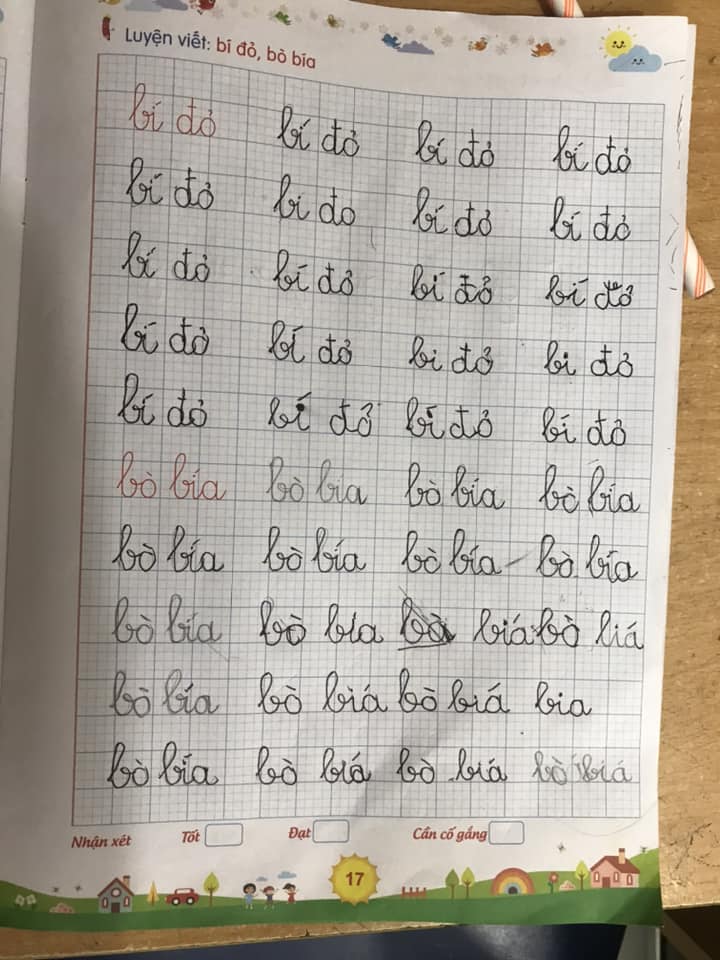 Luyện viết: bí đỏ, bò bía
bí đỏ bí đỏ bí đỏ bí đỏ
bí đỏ bí do bí đỏ bí đỏ
bí đỏ bí đỏ bí đỏ bí đỏ
bí đỏ bí đỏ bi đỏ bi đỏ
bí đỏ bí đổ bí đỏ bí đỏ
bò bía bò bía bò bía bò bía
bò bía bò bía bò bía bò bía
bò bía bò bía bò biá bò liá
bò bía bò biá bò biá bia
bò bía bò biá bò biá bò biá
Nhận xét Tốt Đạt Cần cố gắng
17